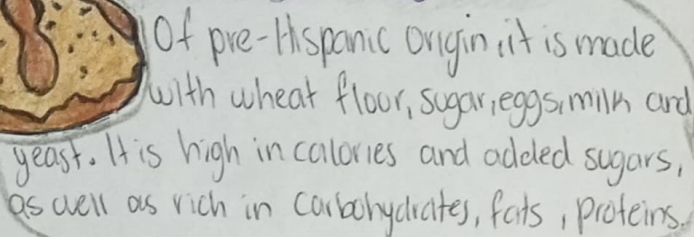 Of pre-Hispanic origin, it is made
with wheat flour, sugar, eggs, milk and
yeast. It is high in calories and added sugars,
as well as rich in carbohydrates, fats, proteins.